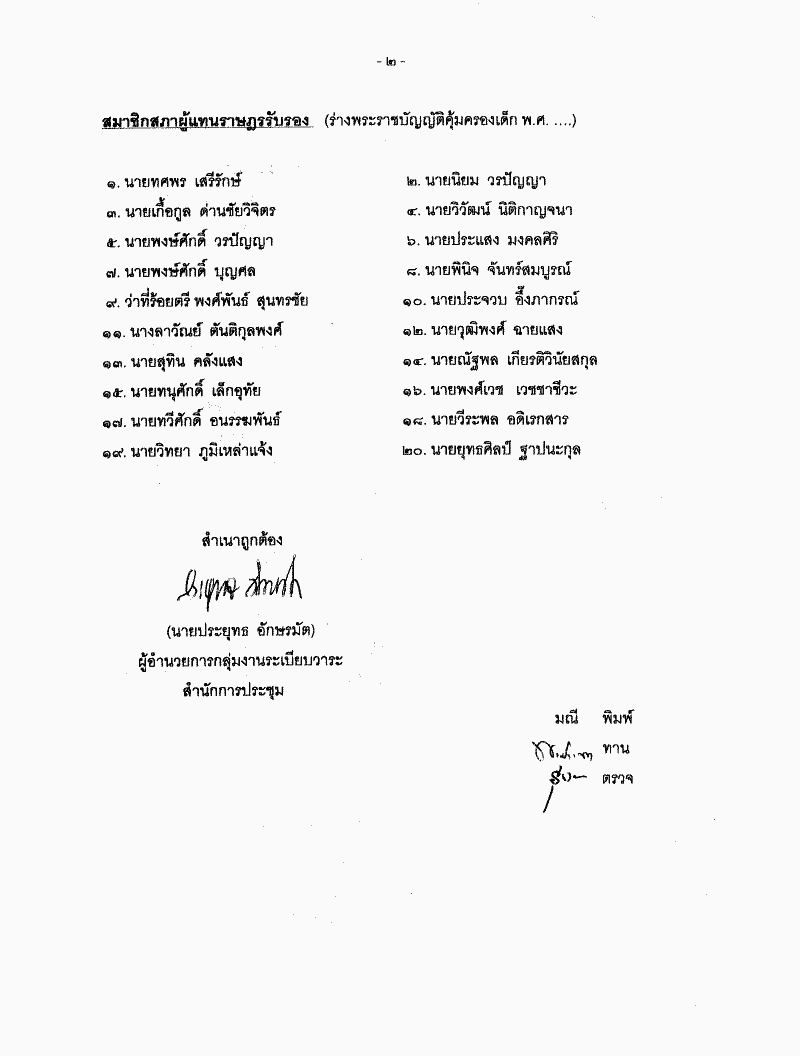 - ๒ -
สมาชิกสภาผู้แทนราษฎรรับรอง (ร่างพระราชบัญญัติคุ้มครองเด็ก พ.ศ. ....)
๑. นายทศพร เสรีรักษ์ ๒. นายนิยม วรปัญญา
๓. นายเกื้อกูล ด่านชัยวิจิตร ๔. นายวิวัฒน์ นิติกาญจนา
๕. นายพงษ์ศักดิ์ วรปัญญา ๖. นายประแสง มงคลศิริ
๗. นายพงษ์ศักดิ์ บุญศล ๘. นายพินิจ จันทร์สมบูรณ์
๙. ว่าที่ร้อยตรี พงศ์พันธ์ สุนทรชัย ๑๐. นายประจวบ อึ๊งภากรณ์
๑๑. นางลาวัณย์ ตันติกุลพงศ์ ๑๒. นายวุฒิพงศ์ ฉายแสง
๑๓. นายสุทิน คลังแสง ๑๔. นายณัฐพล เกียรติวินัยสกุล
๑๕. นายทนุศักดิ์ เล็กอุทัย ๑๖. นายพงศ์เวช เวชชาชีวะ
๑๗. นายทวีศักดิ์ อนรรฆพันธ์ ๑๘. นายวีระพล อดิเรกสาร
๑๙. นายวิทยา ภูมิเหล่าแจ้ง ๒๐. นายยุทธศิลป์ ฐาปนะกุล
สำเนาถูกต้อง
(นายประยุทธ อักษรมัต)
ผู้อำนวยการกลุ่มงานระเบียบวาระ
สำนักการประชุม
มณี พิมพ์
ทาน
ตรวจ